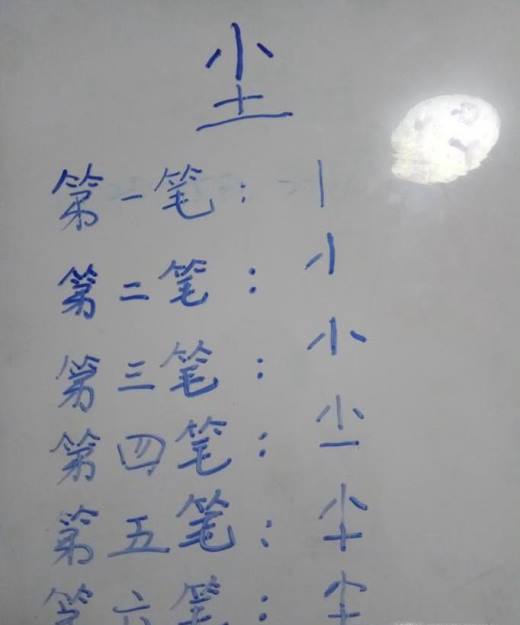 尘
第一笔：丨
第二笔：
第三笔：小
第四笔：
第五笔：
第六笔：尘